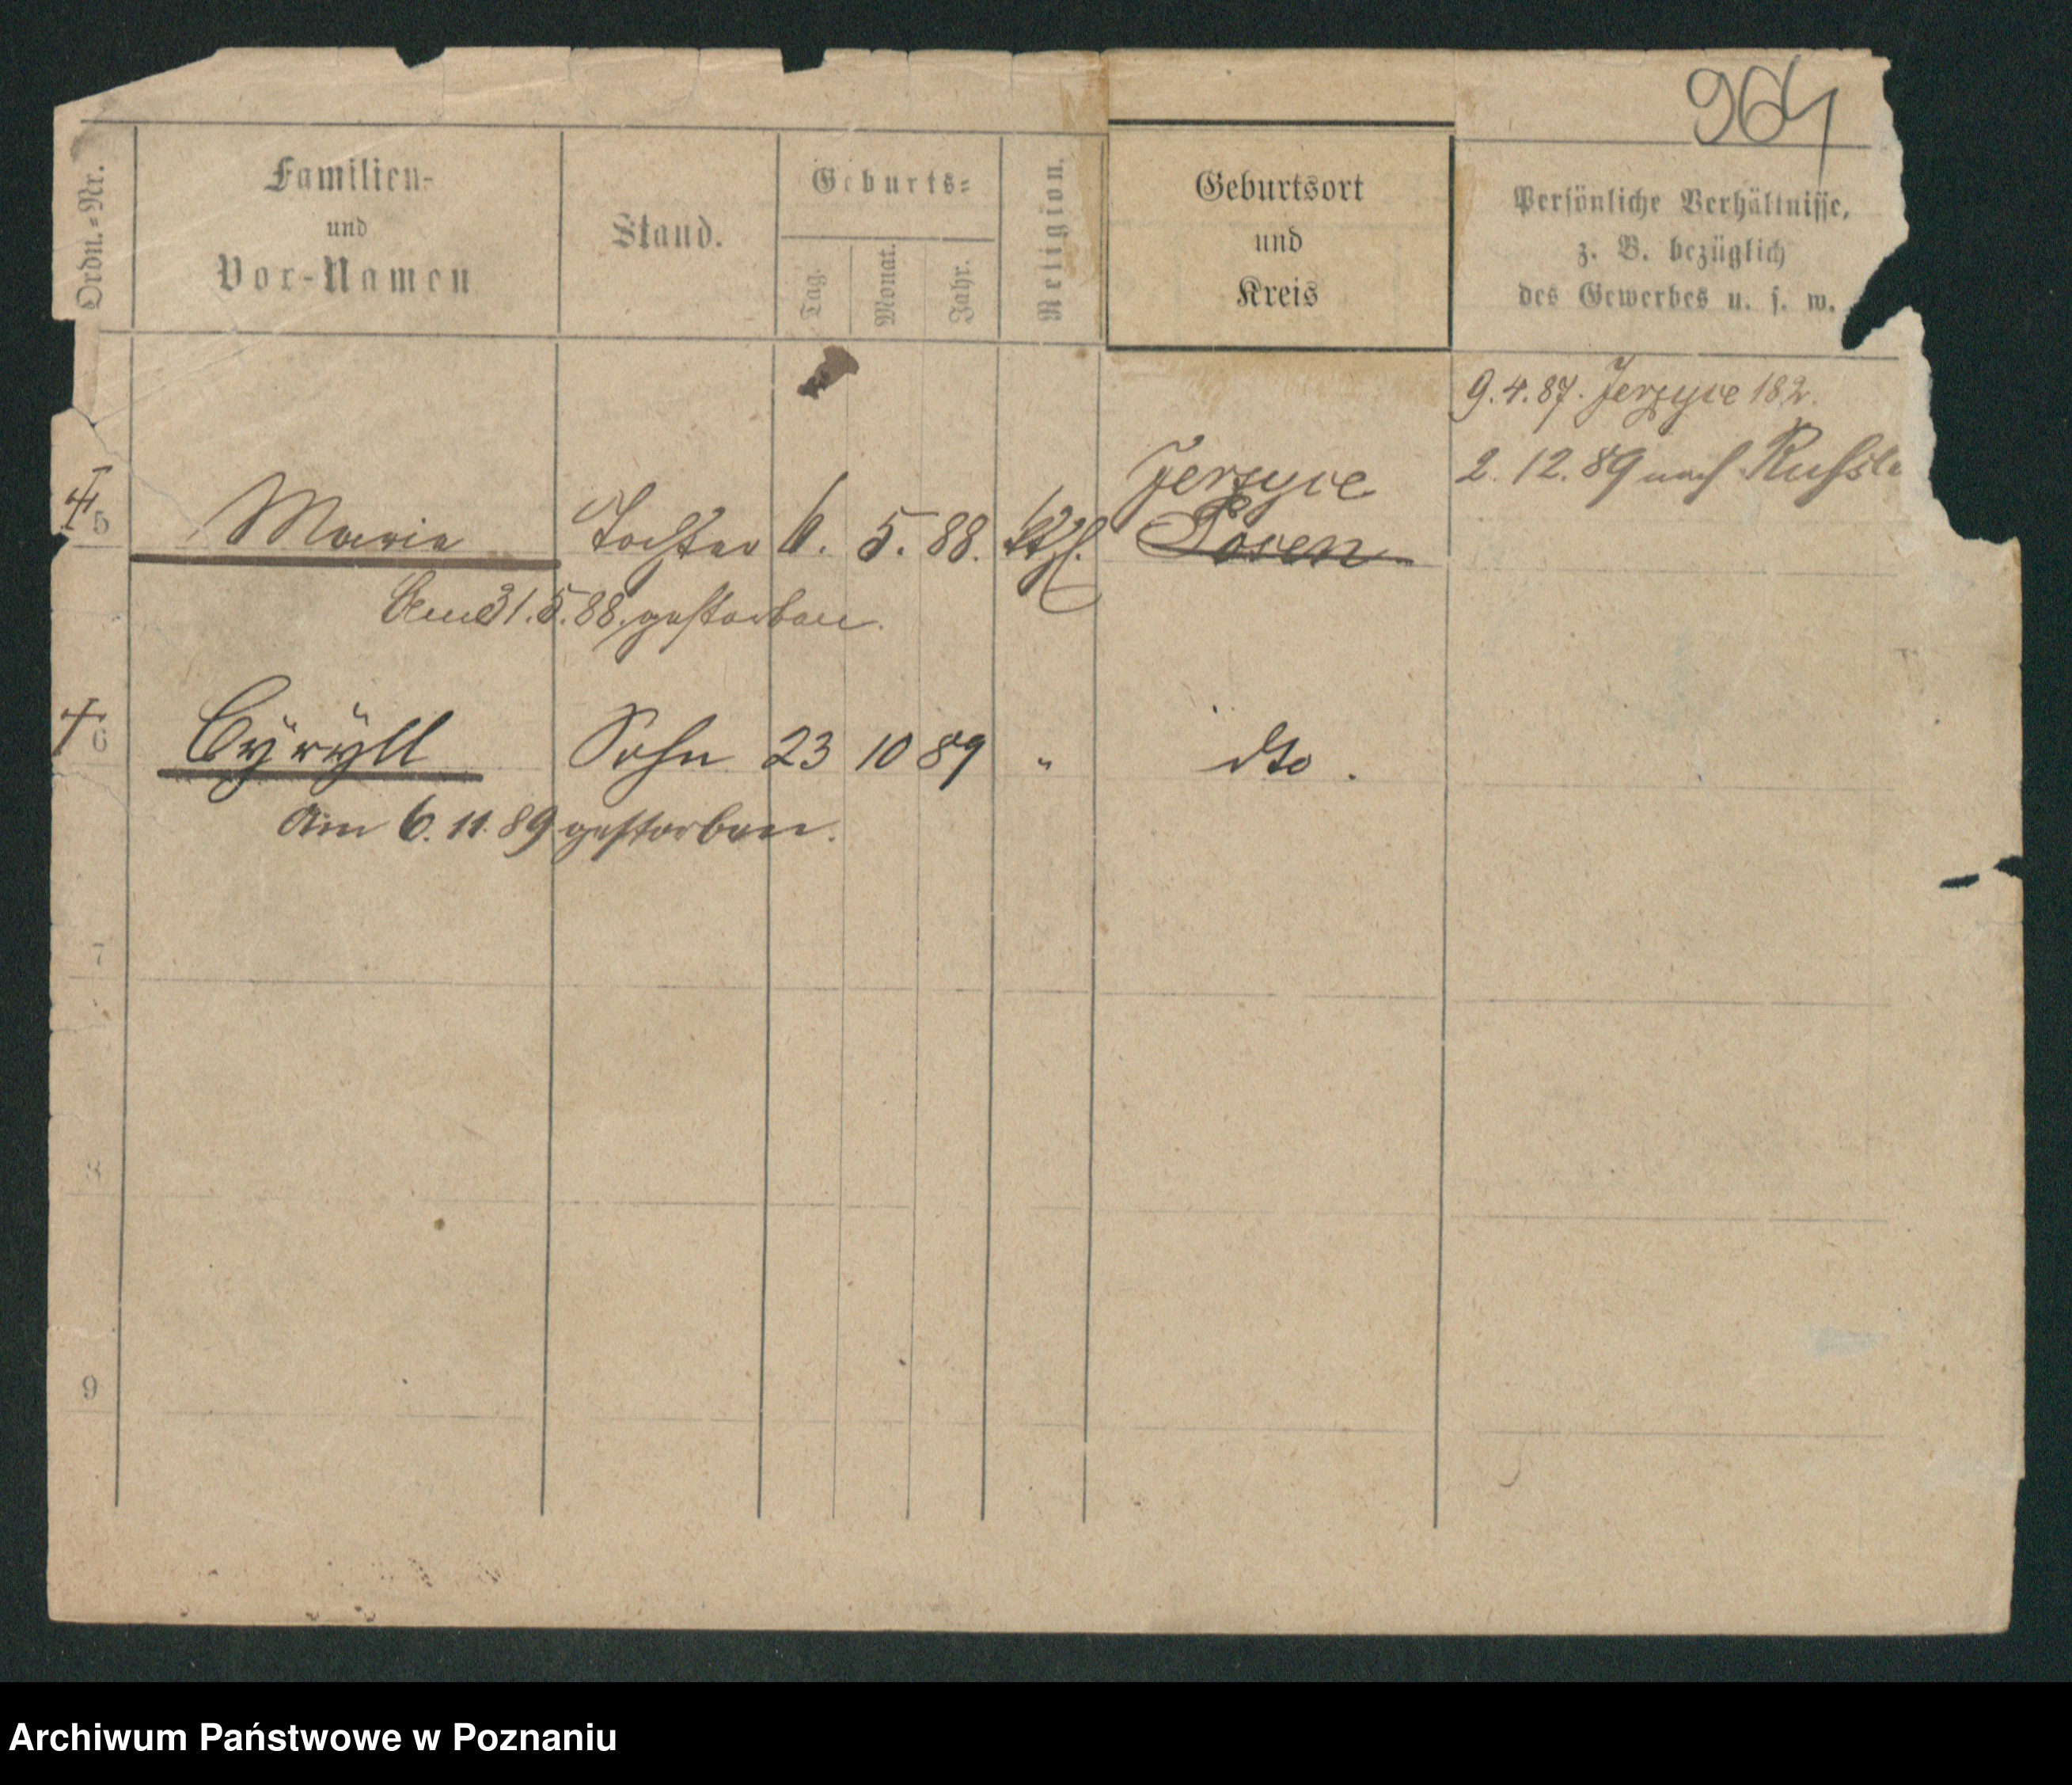 964
Ordn.-Nr.
Familien-
und
Vor-Namen
Stand.
Geburts-
Tag.
Monat.
Jahr.
Religion.
Geburtsort
und
Kreis
Persönliche Verhältnisse,
z. B. bezüglich
des Gewerbes u. s. w.
9.4.87. Jerzyce 182.
2.12.89 nach Russla
Jerzyce
5 Maria Tochter 6. 5. 88. Kth. Posen
Am 31.5.88. gestorben.
6 Cÿrÿll Sohn 23 10 89 " dto.
Am 6.11.89 gestorben.
7
8
9
Archiwum Państwowe w Poznaniu